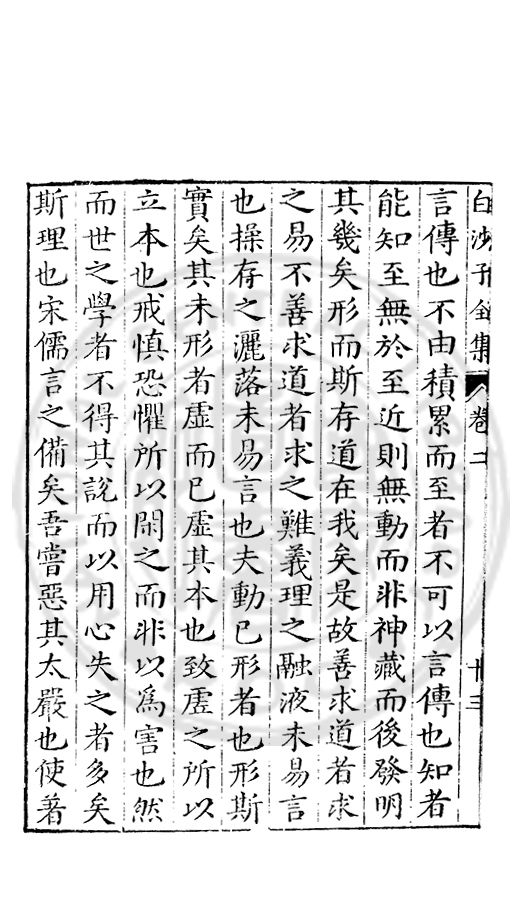 白沙子全集 卷二 廿三
言傳也不由積累而至者不可以言傳也知者
能知至無於至近則無動而非神藏而後發明
其幾矣形而斯存道在我矣是故善求道者求
之易不善求道者求之難義理之融液未易言
也操存之灑落未易言也夫動已形者也形斯
實矣其未形者虛而已虛其本也致虛之所以
立本也戒慎恐懼所以閑之而非以為害也然
而世之學者不得其說而以用心失之者多矣
斯理也宋儒言之備矣吾嘗惡其太嚴也使著